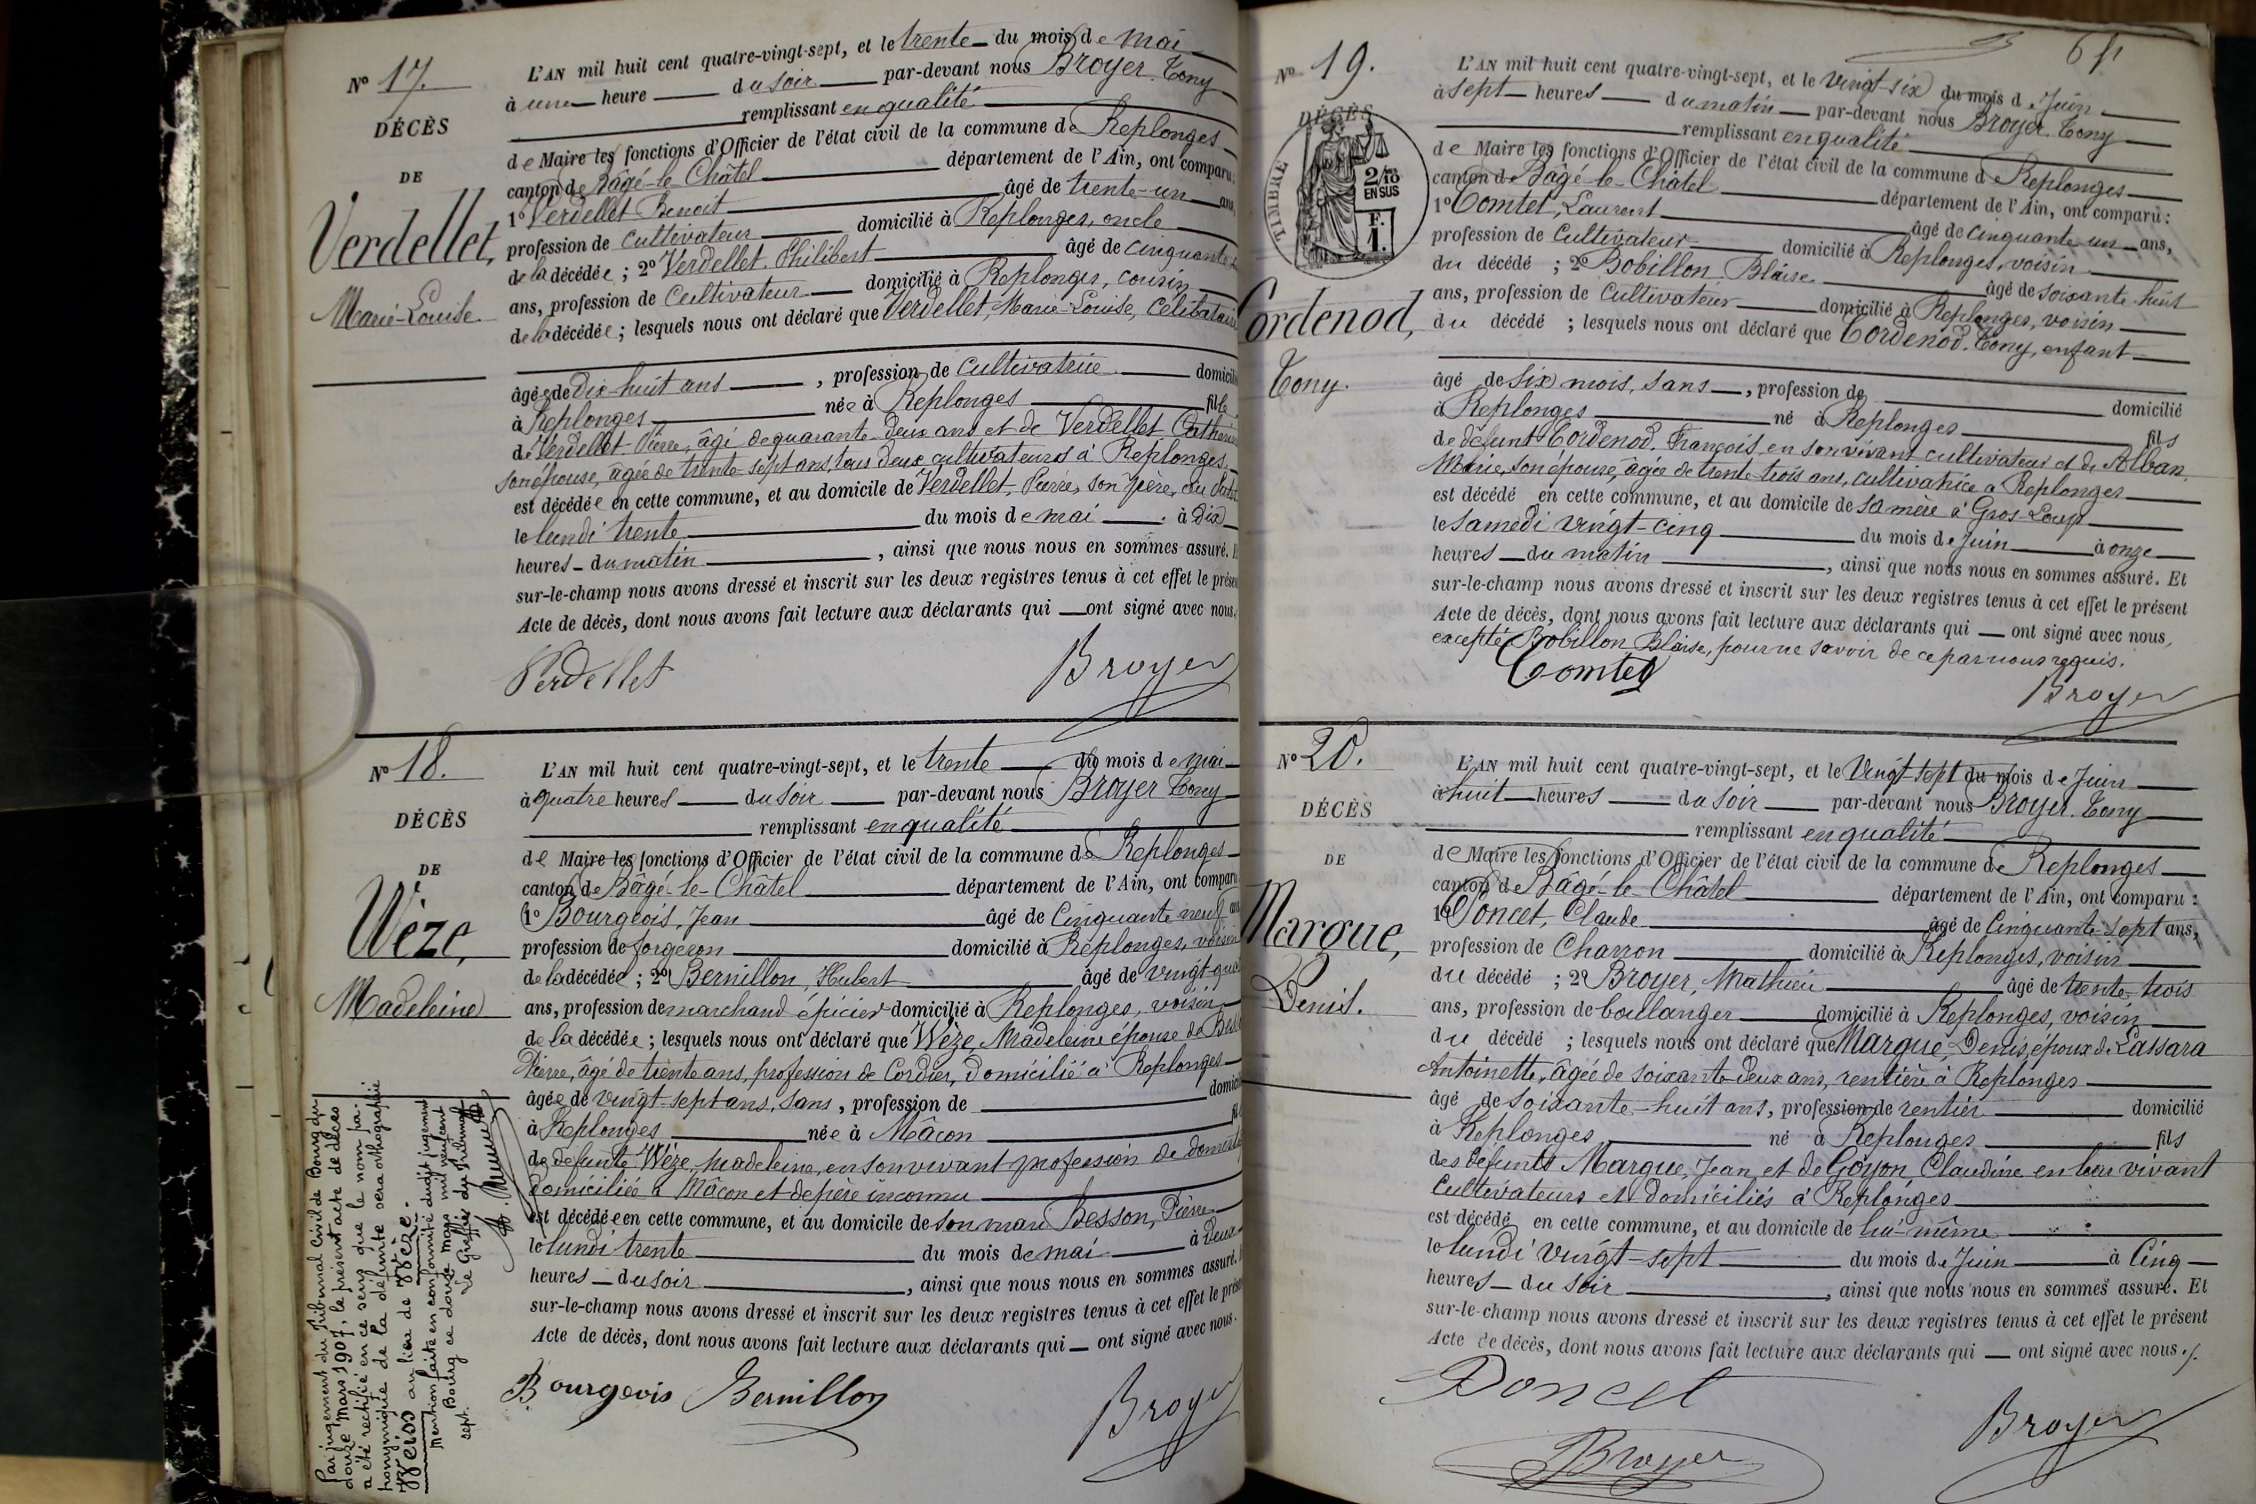 N° 17.
DÉCÈS
DE
Verdellet,
Marie-Louise
L'AN mil huit cent quatre-vingt-sept, et le trente du mois de mai
à une heure du soir par-devant nous Broyer Tony
remplissant en qualité
de Maire les fonctions d'Officier de l'état civil de la commune de Replonges
canton de Bâgé-le-Châtel département de l'Ain, ont comparu:
1° Verdellet Benoit âgé de trente-un ans,
profession de cultivateur domicilié à Replonges, oncle
de la décédée ; 2° Verdellet Philibert âgé de cinquante
ans, profession de Cultivateur domicilié à Replonges, cousin
de la décédée ; lesquels nous ont déclaré que Verdellet, Marie-Louise, Célibataire
âgée de dix-huit ans , profession de cultivatrice domicilié
à Replonges née à Replonges fille
de Verdellet Pierre, âgé de quarante-deux ans et de Verdellet Catherine
son épouse, âgée de trente-sept ans, tous deux cultivateurs à Replonges
est décédée en cette commune, et au domicile de Verdellet, Pierre, son père, au
le lundi trente du mois de mai à dix
heures du matin , ainsi que nous nous en sommes assuré. Et
sur-le-champ nous avons dressé et inscrit sur les deux registres tenus à cet effet le présent
Acte de décès, dont nous avons fait lecture aux déclarants qui ont signé avec nous.
Verdellet Broyer
N° 18.
DÉCÈS
DE
Wèze,
Madeleine
L'AN mil huit cent quatre-vingt-sept, et le trente du mois de mai
à quatre heures du soir par-devant nous Broyer Tony
remplissant en qualité
de Maire les fonctions d'Officier de l'état civil de la commune de Replonges
canton de Bâgé-le-Châtel département de l'Ain, ont comparu
1° Bourgeois, Jean âgé de Cinquante neuf ans
profession de forgeron domicilié à Replonges, voisin
de la décédée ; 2° Bernillon, Hubert âgé de vingt-quatre
ans, profession de marchand épicier domicilié à Replonges, voisin
de la décédée ; lesquels nous ont déclaré que Wèze, Madeleine épouse de Besson
Pierre, âgé de trente ans, profession de Cordier, domicilié à Replonges
âgée de vingt-sept ans, sans , profession de domicilié
à Replonges née à Mâcon fille
de défunte Wèze, Madeleine, en son vivant profession de domestique
domiciliée à Mâcon et de père inconnu
est décédée en cette commune, et au domicile de son mari Besson, Pierre
le lundi trente du mois de mai à deux
heures du soir , ainsi que nous nous en sommes assuré.
sur-le-champ nous avons dressé et inscrit sur les deux registres tenus à cet effet le présent
Acte de décès, dont nous avons fait lecture aux déclarants qui ont signé avec nous.
Bourgeois Bernillon Broyer
Par jugement du Tribunal Civil de Bourg du
douze Mars 1907, le présent acte de décès
a été rectifié en ce sens que le nom pa-
tronymique de la défunte sera orthographié
Weiss au lieu de Wèze.
Mention faite en conformité dudit jugement
Bourg ce douze Mars mil neuf cent
sept. Le Greffier du Tribunal
N° 19.
64
DÉCÈS
TIMBRE
2/10 EN SUS
F. 1.
Cordenod,
Tony.
L'AN mil huit cent quatre-vingt-sept, et le vingt-six du mois de Juin
à sept heures du matin par-devant nous Broyer Tony
remplissant en qualité
de Maire les fonctions d'Officier de l'état civil de la commune de Replonges
canton de Bâgé-le-Châtel département de l'Ain, ont comparu :
1° Comtet, Laurent âgé de cinquante-un ans,
profession de Cultivateur domicilié à Replonges, voisin
du décédé ; 2° Bobillon Blaise âgé de soixante-huit
ans, profession de Cultivateur domicilié à Replonges, voisin
du décédé ; lesquels nous ont déclaré que Cordenod, Tony, enfant
âgé de six mois, sans , profession de domicilié
à Replonges né à Replonges fils
de défunt Cordenod, François, en son vivant cultivateur et de Alban
Marie, son épouse, âgée de trente-trois ans, cultivatrice à Replonges
est décédé en cette commune, et au domicile de sa mère à Gros-Loup
le samedi vingt-cinq du mois de Juin à onze
heures du matin , ainsi que nous nous en sommes assuré. Et
sur-le-champ nous avons dressé et inscrit sur les deux registres tenus à cet effet le présent
Acte de décès, dont nous avons fait lecture aux déclarants qui ont signé avec nous,
excepté Bobillon Blaise, pour ne savoir de ce par nous requis.
Comtet
Broyer
N° 20.
DÉCÈS
DE
Margue,
Denis.
L'AN mil huit cent quatre-vingt-sept, et le Vingt-sept du mois de Juin
à huit heures du soir par-devant nous Broyer Tony
remplissant en qualité
de Maire les fonctions d'Officier de l'état civil de la commune de Replonges
canton de Bâgé-le-Châtel département de l'Ain, ont comparu :
1° Poncet, Claude âgé de Cinquante-sept ans,
profession de Charron domicilié à Replonges, voisin
du décédé ; 2° Broyer, Mathieu âgé de trente-trois
ans, profession de boulanger domicilié à Replonges, voisin
du décédé ; lesquels nous ont déclaré que Margue, Denis, époux de Lassara
Antoinette, âgée de soixante-deux ans, rentière à Replonges
âgé de soixante-huit ans, profession de rentier domicilié
à Replonges né à Replonges fils
des défunts Margue, Jean et de Goyon, Claudine en leur vivant
cultivateurs et domiciliés à Replonges
est décédé en cette commune, et au domicile de lui-même
le lundi vingt-sept du mois de Juin à Cinq
heures du soir , ainsi que nous nous en sommes assuré. Et
sur-le-champ nous avons dressé et inscrit sur les deux registres tenus à cet effet le présent
Acte de décès, dont nous avons fait lecture aux déclarants qui ont signé avec nous.
Poncet
Broyer
Broyer